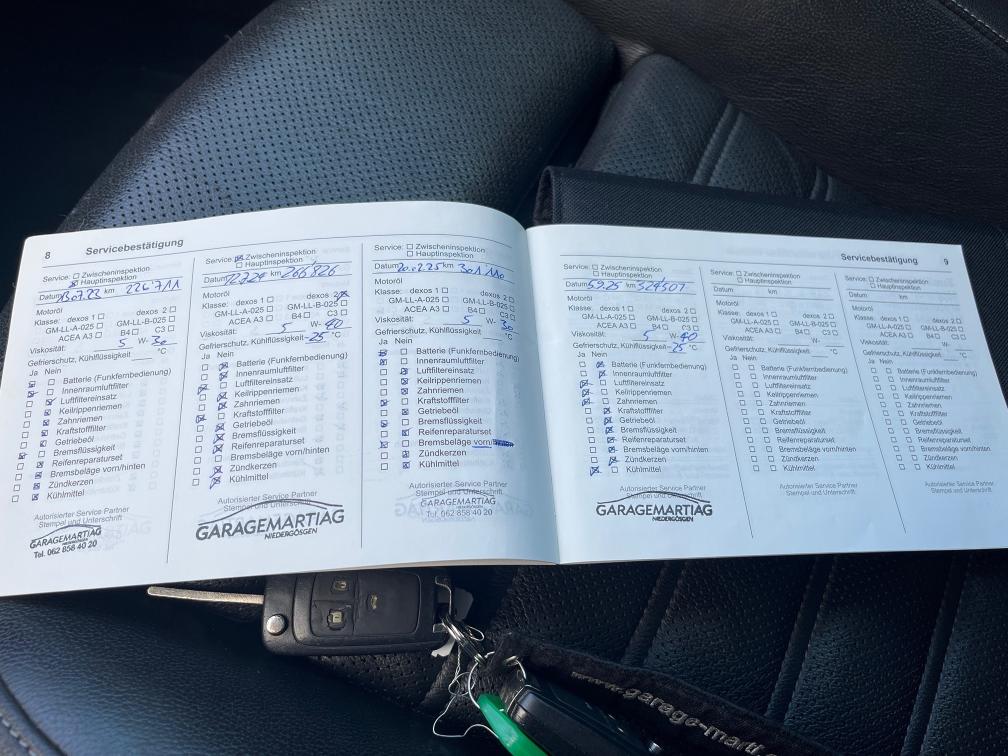 8 Servicebestätigung
Service: Zwischeninspektion
Hauptinspektion
Datum 13.07.23 km 226711
Motoröl
Klasse: dexos 1 dexos 2
GM-LL-A-025 GM-LL-B-025
ACEA A3 B4 C3
Viskosität: 5 W- 30
Gefrierschutz, Kühlflüssigkeit °C
Ja Nein
Batterie (Funkfernbedienung)
Innenraumluftfilter
Luftfiltereinsatz
Keilrippenriemen
Zahnriemen
Kraftstofffilter
Getriebeöl
Bremsflüssigkeit
Reifenreparaturset
Bremsbeläge vorn/hinten
Zündkerzen
Kühlmittel
Autorisierter Service Partner
Stempel und Unterschrift
GARAGEMARTIAG
NIEDERGÖSGEN
Tel. 062 858 40 20
Service: Zwischeninspektion
Hauptinspektion
Datum km 266826
Motoröl
Klasse: dexos 1 dexos 2
GM-LL-A-025 GM-LL-B-025
ACEA A3 B4 C3
Viskosität: 5 W- 40
Gefrierschutz, Kühlflüssigkeit -25 °C
Ja Nein
Batterie (Funkfernbedienung)
Innenraumluftfilter
Luftfiltereinsatz
Keilrippenriemen
Zahnriemen
Kraftstofffilter
Getriebeöl
Bremsflüssigkeit
Reifenreparaturset
Bremsbeläge vorn/hinten
Zündkerzen
Kühlmittel
Autorisierter Service Partner
Stempel und Unterschrift
GARAGEMARTIAG
NIEDERGÖSGEN
Service: Zwischeninspektion
Hauptinspektion
Datum 20.02.25 km 301110
Motoröl
Klasse: dexos 1 dexos 2
GM-LL-A-025 GM-LL-B-025
ACEA A3 B4 C3
Viskosität: 5 W- 30
Gefrierschutz, Kühlflüssigkeit °C
Ja Nein
Batterie (Funkfernbedienung)
Innenraumluftfilter
Luftfiltereinsatz
Keilrippenriemen
Zahnriemen
Kraftstofffilter
Getriebeöl
Bremsflüssigkeit
Reifenreparaturset
Bremsbeläge vorn/
Zündkerzen
Kühlmittel
Autorisierter Service Partner
Stempel und Unterschrift
GARAGEMARTIAG
NIEDERGÖSGEN
Tel. 062 858 40 20
Servicebestätigung 9
Service: Zwischeninspektion
Hauptinspektion
Datum 5.9.25 km 329507
Motoröl
Klasse: dexos 1 dexos 2
GM-LL-A-025 GM-LL-B-025
ACEA A3 B4 C3
Viskosität: 5 W- 40
Gefrierschutz, Kühlflüssigkeit -25 °C
Ja Nein
Batterie (Funkfernbedienung)
Innenraumluftfilter
Luftfiltereinsatz
Keilrippenriemen
Zahnriemen
Kraftstofffilter
Getriebeöl
Bremsflüssigkeit
Reifenreparaturset
Bremsbeläge vorn/hinten
Zündkerzen
Kühlmittel
Autorisierter Service Partner
Stempel und Unterschrift
GARAGEMARTIAG
NIEDERGÖSGEN
Service: Zwischeninspektion
Hauptinspektion
Datum km
Motoröl
Klasse: dexos 1 dexos 2
GM-LL-A-025 GM-LL-B-025
ACEA A3 B4 C3
Viskosität: W-
Gefrierschutz, Kühlflüssigkeit °C
Ja Nein
Batterie (Funkfernbedienung)
Innenraumluftfilter
Luftfiltereinsatz
Keilrippenriemen
Zahnriemen
Kraftstofffilter
Getriebeöl
Bremsflüssigkeit
Reifenreparaturset
Bremsbeläge vorn/hinten
Zündkerzen
Kühlmittel
Autorisierter Service Partner
Stempel und Unterschrift
Service: Zwischeninspektion
Hauptinspektion
Datum km
Motoröl
Klasse: dexos 1 dexos 2
GM-LL-A-025 GM-LL-B-025
ACEA A3 B4 C3
Viskosität: W-
Gefrierschutz, Kühlflüssigkeit °C
Ja Nein
Batterie (Funkfernbedienung)
Innenraumluftfilter
Luftfiltereinsatz
Keilrippenriemen
Zahnriemen
Kraftstofffilter
Getriebeöl
Bremsflüssigkeit
Reifenreparaturset
Bremsbeläge vorn/hinten
Zündkerzen
Kühlmittel
Autorisierter Service Partner
Stempel und Unterschrift
www.garage-marti